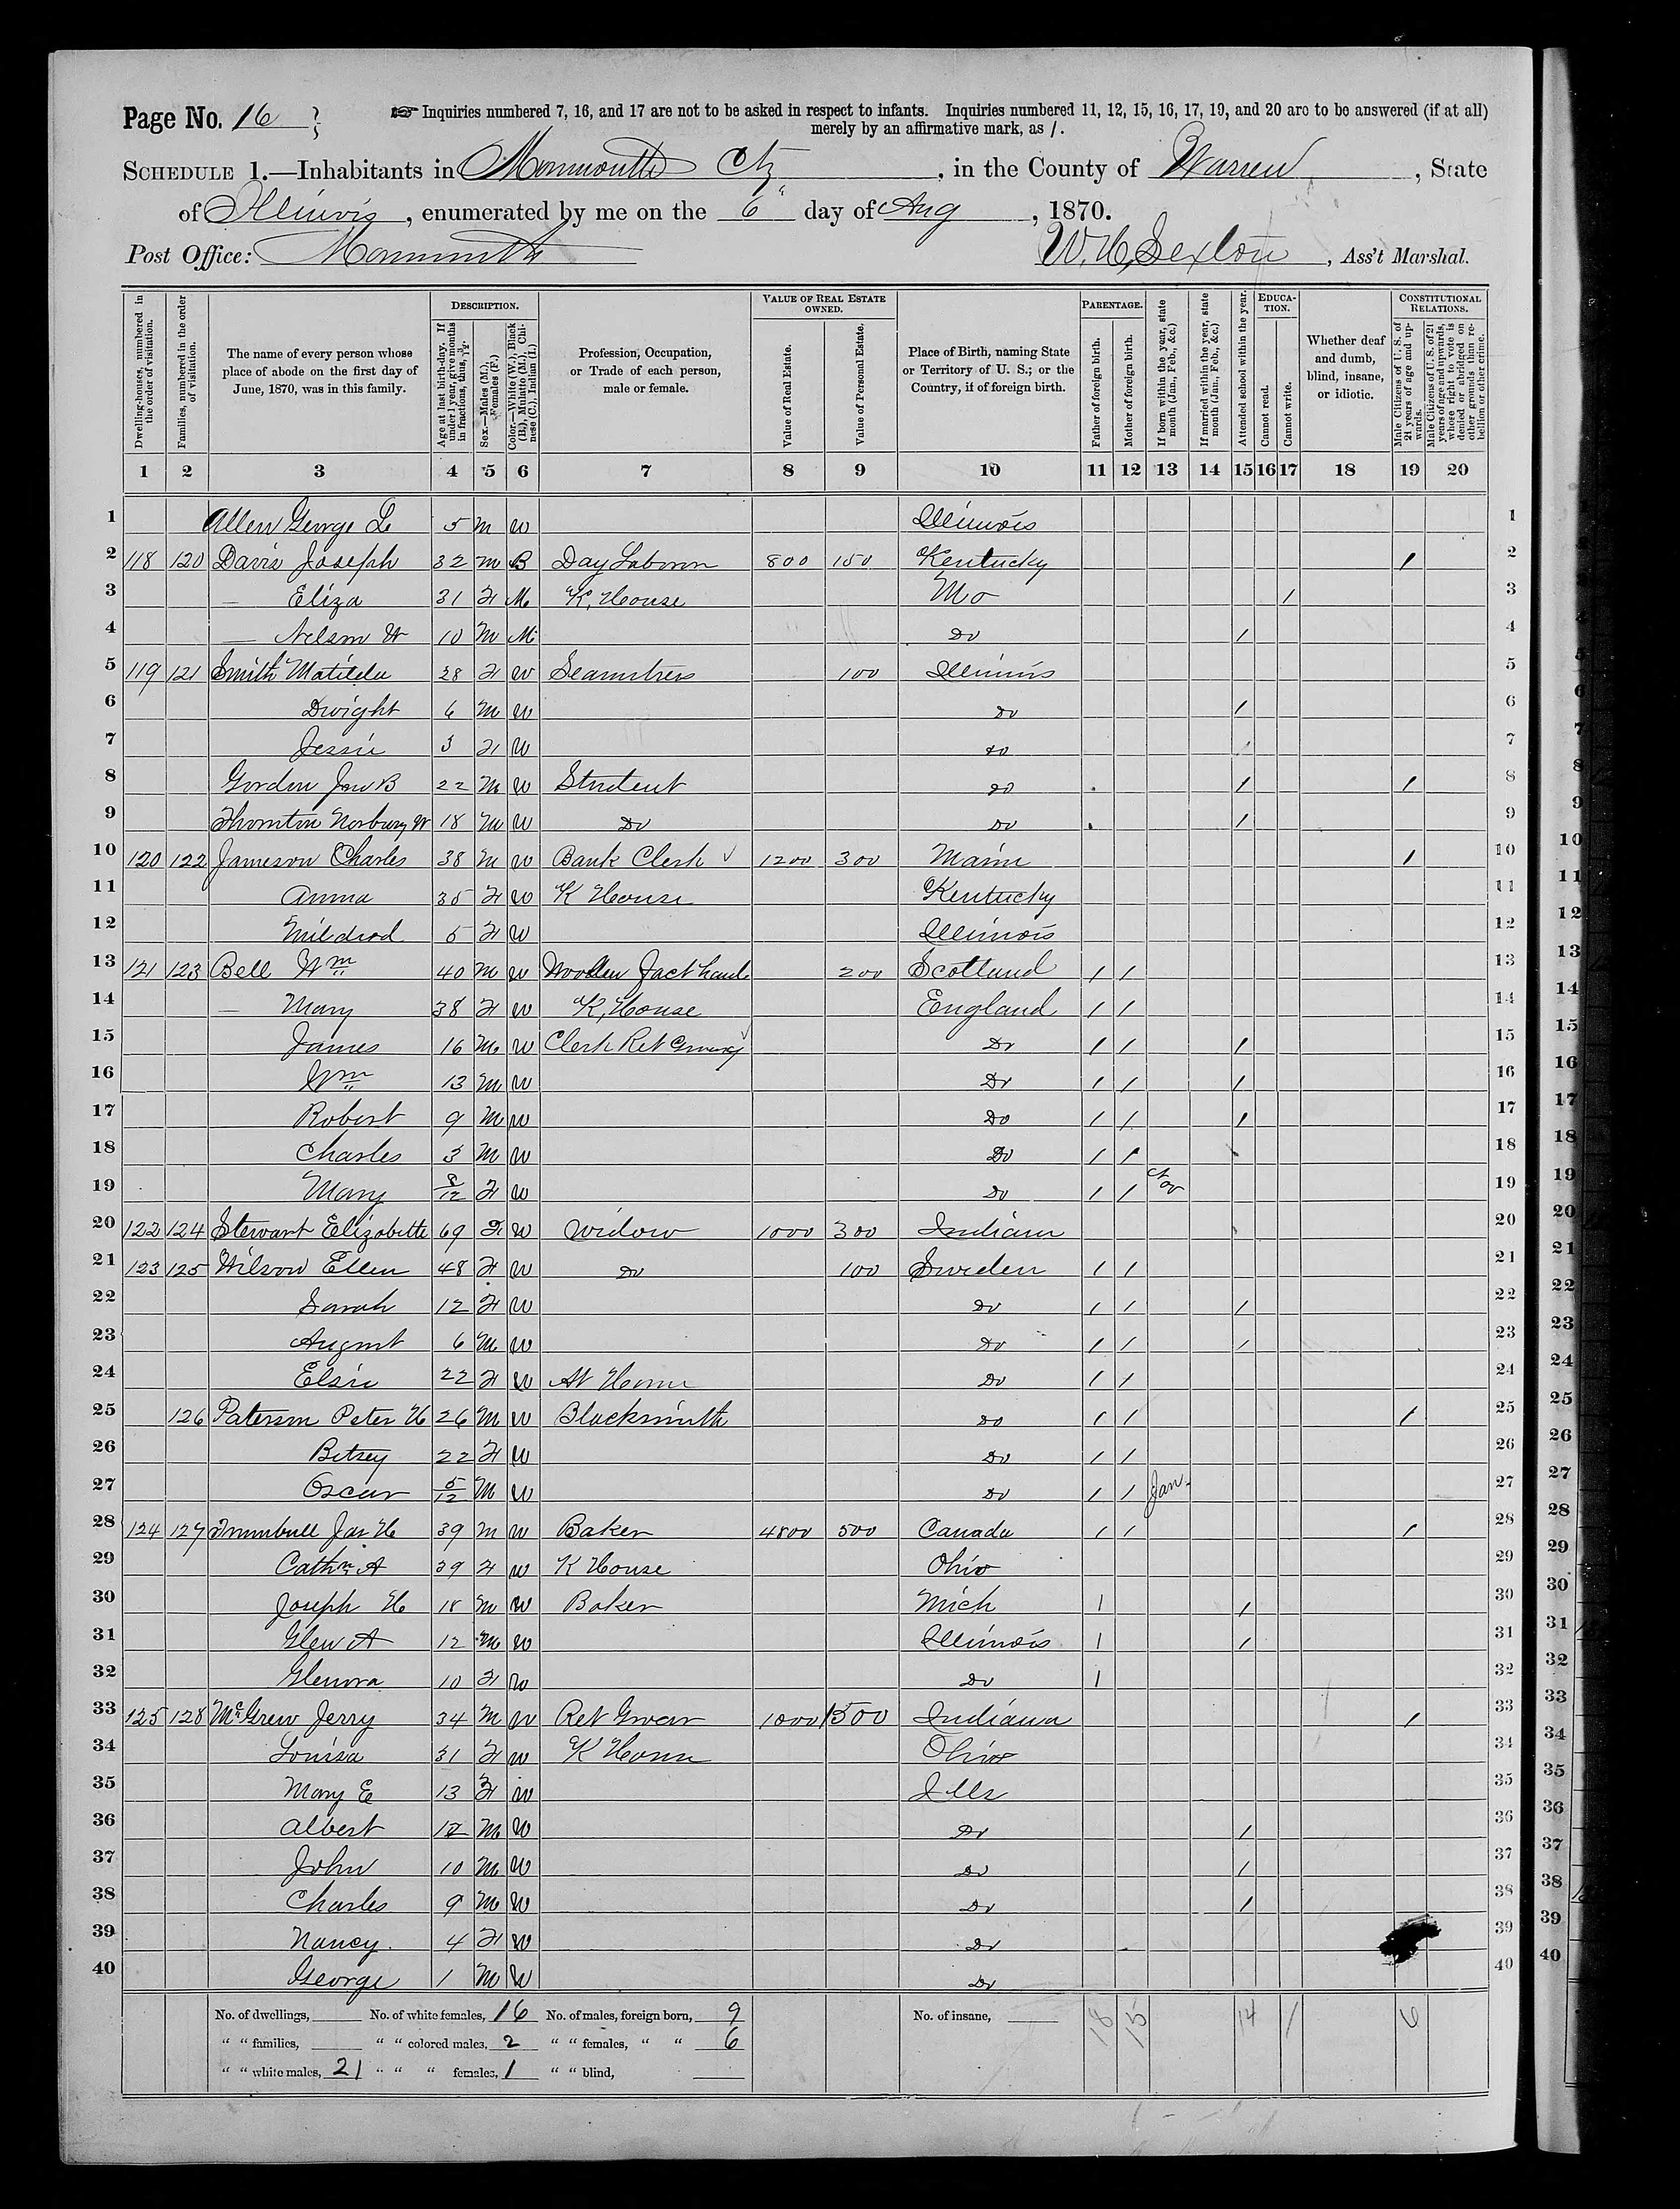 Page No. 16 } ☞ Inquiries numbered 7, 16, and 17 are not to be asked in respect to infants. Inquiries numbered 11, 12, 15, 16, 17, 19, and 20 are to be answered (if at all)
merely by an affirmative mark, as /.
SCHEDULE 1.—Inhabitants in Monmouth Cty, in the County of Warren, State
of Illinois, enumerated by me on the 6" day of Aug, 1870.
Post Office: Monmouth W. H. Sexton, Ass't Marshal.
Dwelling-houses, numbered in the order of visitation.
Families, numbered in the order of visitation.
The name of every person whose place of abode on the first day of June, 1870, was in this family.
DESCRIPTION.
Age at last birth-day. If under 1 year, give months in fractions, thus, 3/12.
Sex.—Males (M.), Females (F.)
Color.—White (W.), Black (B.), Mulatto (M.), Chinese (C.), Indian (I.)
Profession, Occupation, or Trade of each person, male or female.
VALUE OF REAL ESTATE OWNED.
Value of Real Estate.
Value of Personal Estate.
Place of Birth, naming State or Territory of U. S.; or the Country, if of foreign birth.
PARENTAGE.
Father of foreign birth.
Mother of foreign birth.
If born within the year, state month (Jan., Feb., &c.)
If married within the year, state month (Jan., Feb., &c.)
Attended school within the year.
EDUCATION.
Cannot read.
Cannot write.
Whether deaf and dumb, blind, insane, or idiotic.
CONSTITUTIONAL RELATIONS.
Male Citizens of U. S. of 21 years of age and upwards.
Male Citizens of U. S. of 21 years of age and upwards, whose right to vote is denied or abridged on other grounds than rebellion or other crime.
1 2 3 4 5 6 7 8 9 10 11 12 13 14 15 16 17 18 19 20
1 Allen George L 5 M W Illinois 1
2 118 120 Davis Joseph 32 M B Day Laborer 800 150 Kentucky / 2
3 — Eliza 31 F M K, House Mo / 3
4 — Nelson W 10 M M Do / 4
5 119 121 Smith Matilda 28 F W Seamstress 100 Illinois 5
6 Dwight 6 M W Do / 6
7 Jessie 3 F W do 7
8 Gordon Jno B 22 M W Student do / / 8
9 Thornton Norbury W 18 M W Do Do / 9
10 120 122 Jameson Charles 38 M W Bank Clerk √ 1200 300 Main / 10
11 Anna 35 F W K House Kentucky 11
12 Mildred 5 F W Illinois 12
13 121 123 Bell Wm 40 M W Woollen Fact hand 200 Scotland / / 13
14 — Mary 38 F W K, House England / / 14
15 James 16 M W Clerk Ret Grocery √ Do / / / 15
16 Wm 13 M W Do / / / 16
17 Robert 9 M W Do / / / 17
18 Charles 3 M W Do / / 18
19 Mary 8/12 F W Do / / 19
20 122 124 Stewart Elizabeth 69 F W Widow 1000 300 Indiana 20
21 123 125 Wilson Ellen 48 F W Do 100 Sweden / / 21
22 Sarah 12 F W Do / / / 22
23 August 6 M W Do / / / 23
24 Elsie 22 F W At Home Do / / 24
25 126 Paterson Peter H 26 M W Blacksmith Do / / / 25
26 Betsey 22 F W Do / / 26
27 Oscar 5/12 M W Do / / Jan. 27
28 124 127 Trumbull Jas H 39 M W Baker 4800 500 Canada / / / 28
29 Cathn A 39 F W K House Ohio 29
30 Joseph H 18 M W Baker Mich / / 30
31 Glen A 12 M W Illinois / / 31
32 Glenora 10 F W Do / 32
33 125 128 McGrew Jerry 34 M W Ret Grocer 1000 1500 Indiana / 33
34 Louisa 31 F W K House Ohio 34
35 Mary E 13 F W Ills 35
36 Albert 12 M W Do / 36
37 John 10 M W Do / 37
38 Charles 9 M W Do / 38
39 Nancy. 4 F W Do 39
40 George 1 M W Do 40
No. of dwellings, No. of white females, 16 No. of males, foreign born, 9 No. of insane, 18 15 14 1 6
" " families, " " colored males, 2 " " females, " " 6
" " white males, 21 " " " females, 1 " " blind,